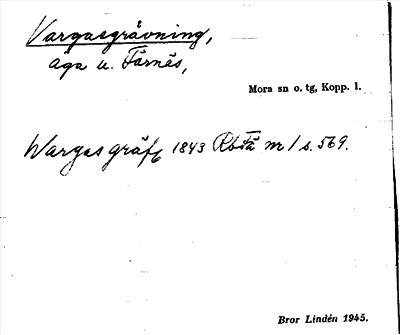 Vargasgråvning,
äga u. Färnäs,
Mora sn o. tg, Kopp. l.
Wargas gräf 1843 Rbtä m 1 s. 569.
Bror Lindén 1945.